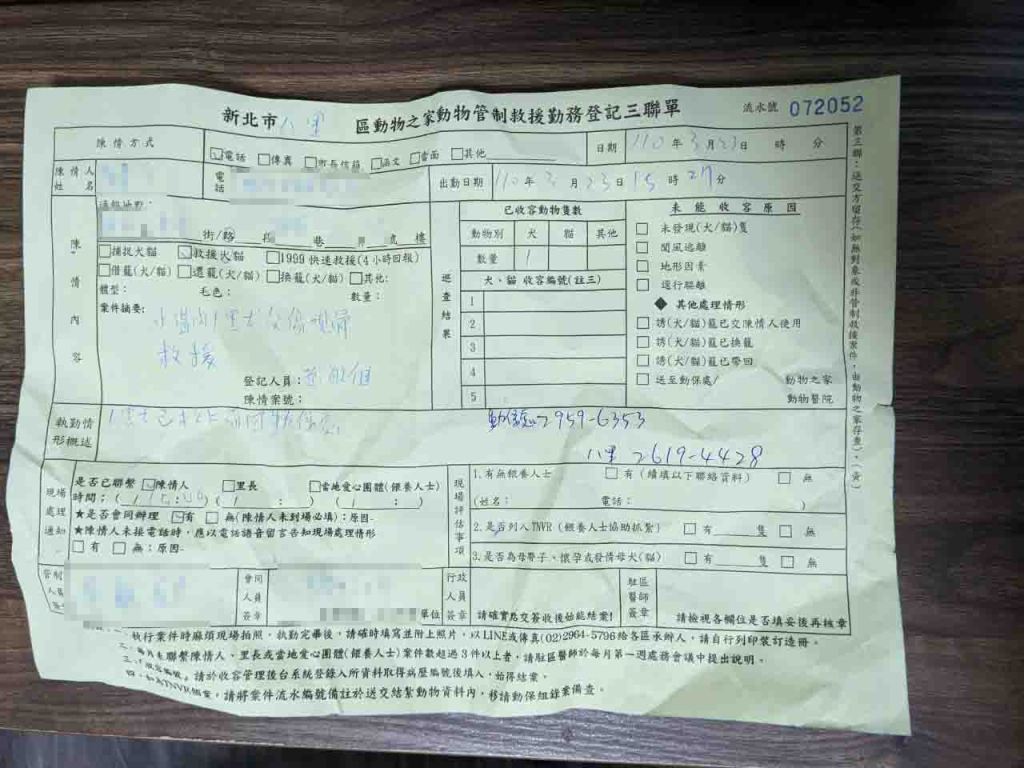 新北市八里 區動物之家動物管制救援勤務登記三聯單 流水號 072052
陳情方式 電話 傳真 市長信箱 函文 當面 其他 日期 110年3月23日 時 分
陳情人姓名 電話 出勤日期 110年3月23日15時27分
陳情內容
通報地點:
街/路 段 巷 弄 處 樓
捕捉犬貓 救援犬貓 1999快速救援(4小時回報)
借籠(犬/貓) 還籠(犬/貓) 換籠(犬/貓) 其他:
體型: 毛色: 數量:
案件摘要:
救援
登記人員:
陳情案號:
巡查結果
已收容動物隻數
動物別 犬 貓 其他
數量 1
犬、貓 收容編號(註三)
1
2
3
4
5
未能收容原因
未發現(犬/貓)隻
聞風逃離
地形因素
逕行驅離
◆ 其他處理情形
誘(犬/貓)籠已交陳情人使用
誘(犬/貓)籠已換籠
誘(犬/貓)籠已帶回
送至動保處/ 動物之家
動物醫院
執勤情形概述
2959-6353
八里 2619-4428
現場處理通知
是否已聯繫 陳情人 里長 當地愛心團體(餵養人士)
時間:
★是否會同辦理 有 無(陳情人未到場必填):原因
★陳情人未接電話時,應以電話語音留言告知現場處理情形
有 無:原因
現場評估事項
1.有無餵養人士 有(續填以下聯絡資料) 無
(姓名: 電話: )
2.是否列入TNVR(餵養人士協助抓紮) 有 隻 無
3.是否為母帶子、懷孕或發情母犬(貓) 有 隻 無
管制人員簽章
會同人員簽章 單位
行政人員簽章 請確實點交簽收後始能結案!
駐區醫師簽章 請檢視各欄位是否填妥後再核章
執行案件時麻煩現場拍照,執勤完畢後,請確時填寫並附上照片,以LINE或傳真(02)2964-5796給各區承辦人,請自行列印裝訂造冊。
聯繫陳情人、里長或當地愛心團體(餵養人士)案件數超過3件以上者,請駐區醫師於每月第一週處務會議中提出說明。
請於收容管理後台系統登錄入所資料取得病歷編號後填入,始得結案。
請將案件流水編號備註於送交結紮動物資料內,移請動保組錄案備查。